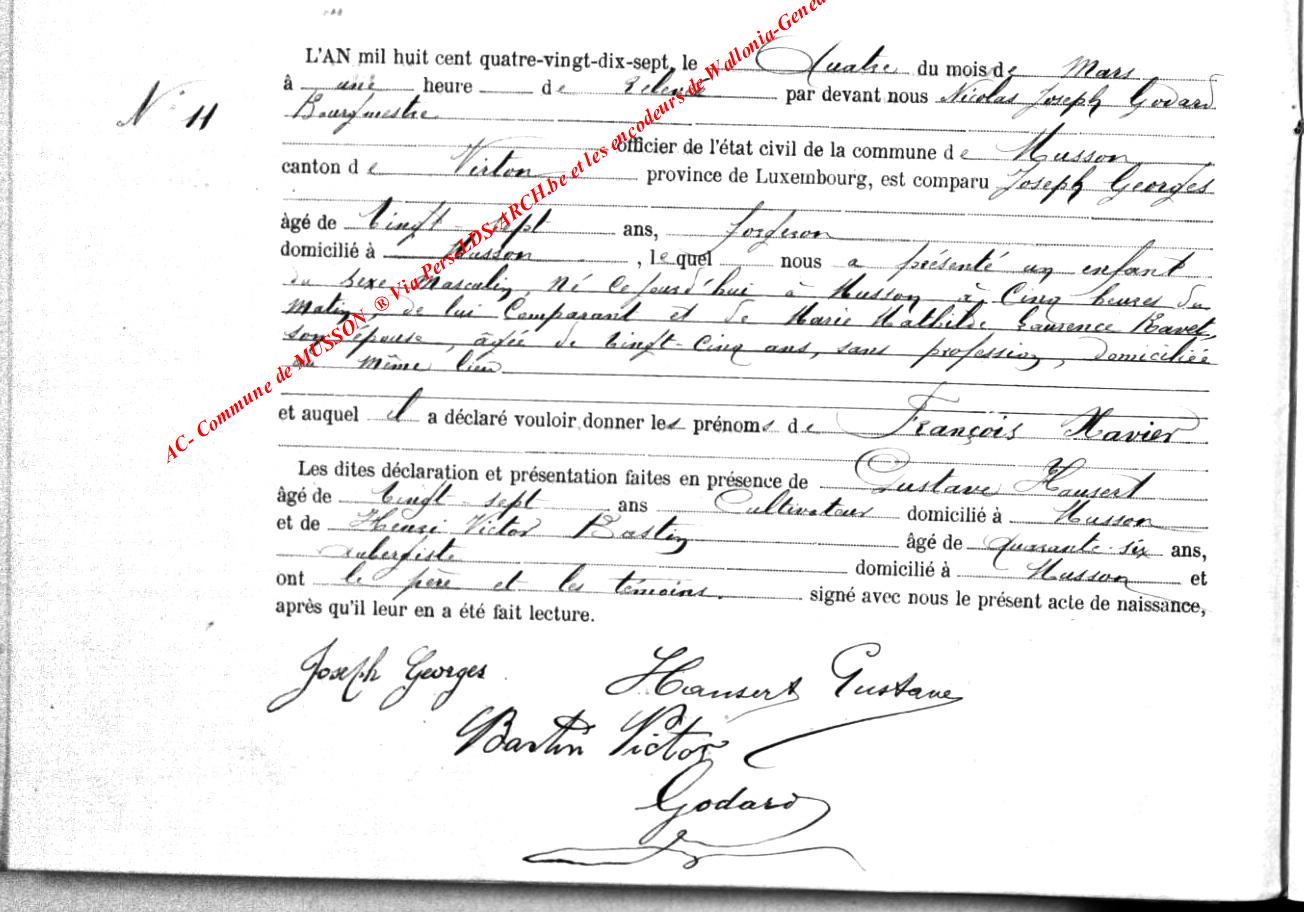 L'AN mil huit cent quatre-vingt-dix-sept, le Quatre du mois de Mars
N° 11
à une heure de relevée par devant nous Nicolas Joseph Godard
Bourgmestre
officier de l'état civil de la commune de Musson
canton de Virton province de Luxembourg, est comparu Joseph Georges
âgé de vingt sept ans, forgeron
domicilié à Musson, lequel nous a présenté un enfant
du sexe masculin, né cejourd'hui à Musson à Cinq heures du
Matin, de lui Comparant et de Marie Mathilde Laurence
son épouse, âgée de vingt-cinq ans, sans profession, domiciliée
au même lieu
et auquel il a déclaré vouloir donner les prénoms de François Xavier
Les dites déclaration et présentation faites en présence de Gustave Hansert
âgé de vingt sept ans Cultivateur domicilié à Musson
et de Henri Victor Bastin âgé de quarante-six ans,
aubergiste domicilié à Musson et
ont le père et les témoins. signé avec nous le présent acte de naissance,
après qu'il leur en a été fait lecture.
Joseph Georges Hansert Gustave
Bastin Victor
Godard
AC- Commune de MUSSON ® Via Pers LDS-ARCH.be et les encodeurs de Wallonia-Genea